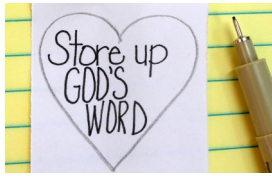 Store up
GOD'S
WORD